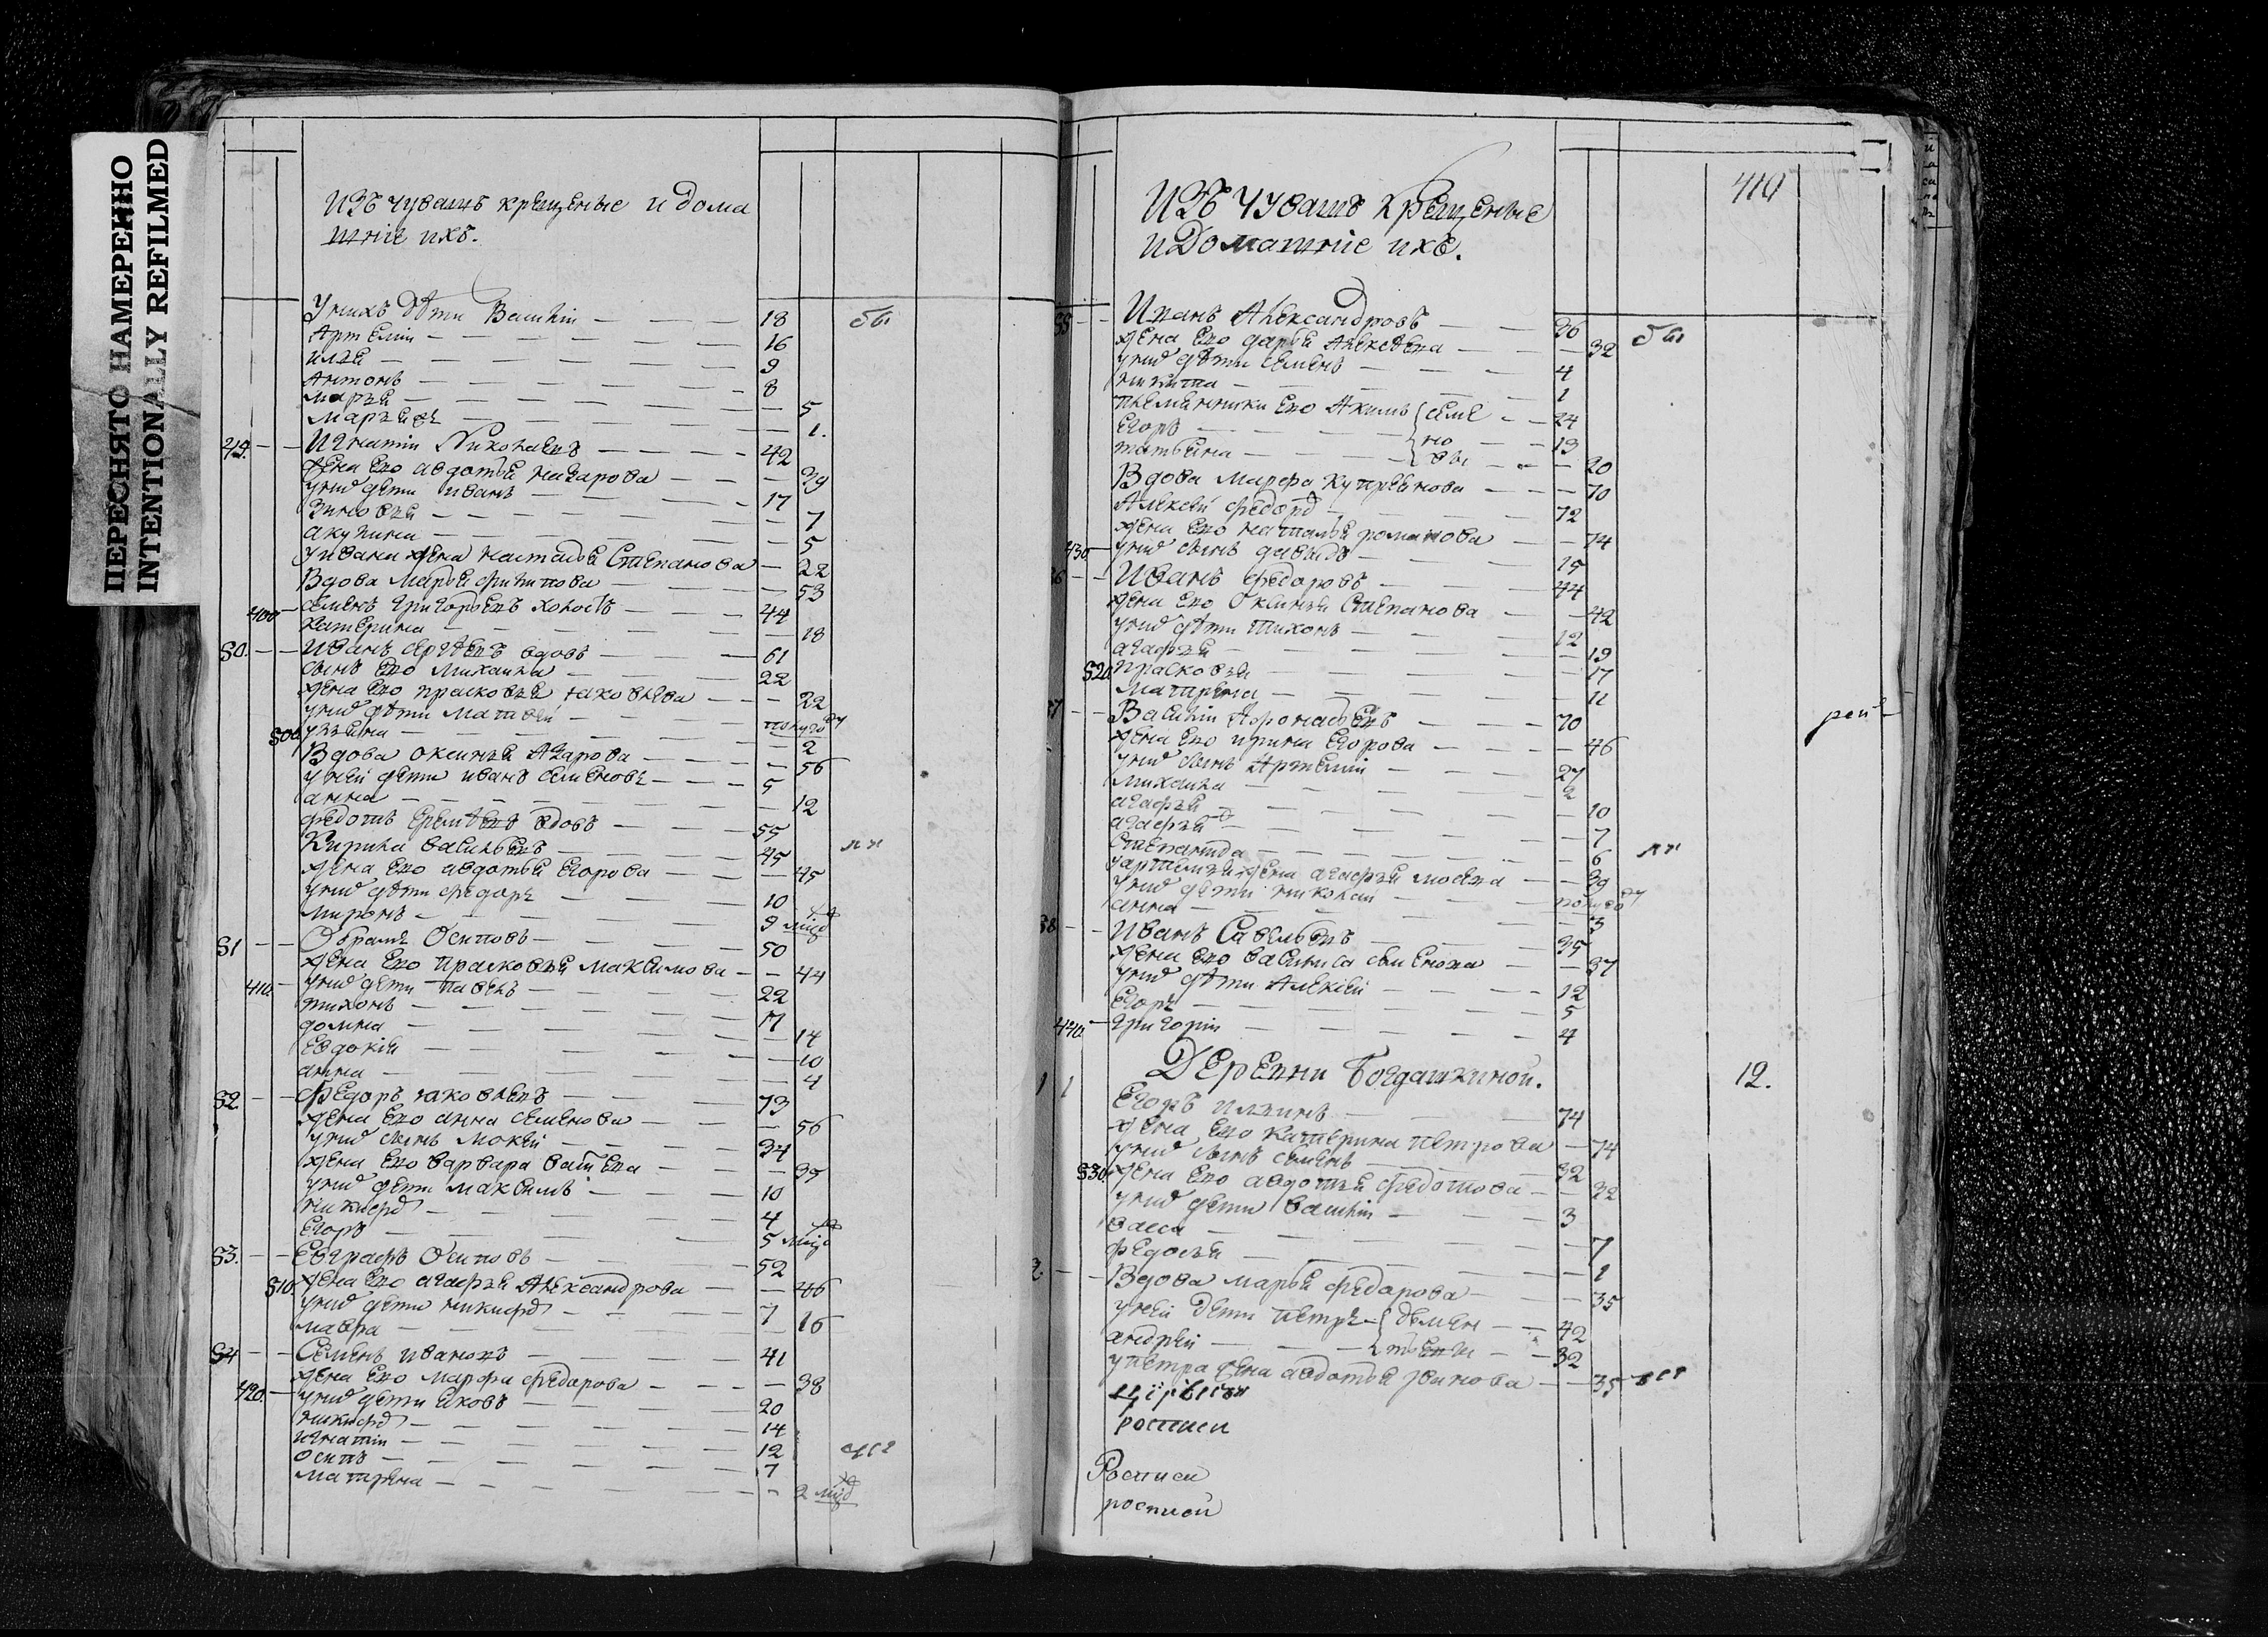 ПЕРЕСНЯТО НАМЕРЕННО
INTENTIONALLY REFILMED
изъ чувашъ крещеные и дома
шніе ихъ.
У нихъ дѣти Василіи 18 бы
Артеміи 16
илья 9
Антонъ 8
марья 5
марья 1.
49. Игнатіи Николаевъ 42
жена ево авдотья назарова 39
у нихъ дети иванъ 17
зиновья 7
акулина 5
у ивана жена настасья Степанова 22
Вдова Марья филипова 53
400 семенъ григорьевъ холостъ 44
катерина 18
50. Иванъ сергѣевъ вдовъ 61
сынъ ево михаила 22
жена ево прасковья яковлева 22
у них дѣти матвеи полугоду
500 ульяна 2
Вдова оксинья Азарова 56
у неи дети иванъ семеновъ 5
анна 12
федотъ еремѣевъ вдовъ 55
Кирила васильевъ 45 ли
жена ево авдотья егорова 45
у них дѣти федоръ 10
миронъ 9 млд
51 Обрамъ Осиповъ 50
жена ево прасковья максимова 44
410 у них дети павелъ 22
тихонъ 17
домна 14
евдокія 10
анна 4
52 Федоръ яковлевъ 73
жена ево анна семенова 56
у них сынъ мокеи 34
жена ево варвара васильева 35
у них дети максимъ 10
никифор 4
егоръ 5 млд
53. Евграфъ Осиповъ 52
510 жена ево агафья Александрова 46
у них дети никифор 7
мавра 16
54 Семенъ ивановъ 41
жена ево марфа федорова 38
420. у них дети яковъ 20
никифор 14
игнатіи 12
осипъ 7
матрена 2 млд
410
изъ чувашъ крещеные
и домашніе ихъ.
55 Иванъ Александровъ 36 бы
жена ево дарья Алексѣева 32
у них дѣти семенъ 4
никита 1
племянники ево Акимъ семе 24
егоръ но 19
татьяна вы 20
Вдова марфа куприянова 70
Алексеи федоров 72
жена ево наталья романова 74
430 у них сынъ давыдъ 15
56 Иванъ федоровъ 44
жена ево оксинья Степанова 42
у них дѣти тихонъ 12
агафья 19
520 прасковья 17
матрена 11
57 Василіи Афонасьевъ 70
жена ево ирина егорова 46
у них сынъ Артеміи 27
михаила 2
агафья 10
агафья 7
степанида 6 ли
у артемья жена агафья мосеева 39
у них дети николаи полугоду
анна 3
58 Иванъ Савельевъ 35
жена ево василиса семенова 37
у них дѣти Алексеи 12
егоръ 5
440 григоріи 4
Деревни Богдашкиной. 12.
1 1 Егоръ ильинъ 74
жена ево катерина петрова 74
у них сынъ семенъ 32
530 жена ево авдотья федотова 32
у них дети василіи 3
васса 7
федосья 1
2 Вдова марья федорова 35
у неи дети петръ демен 42
андреи тьевы 32
у петра жена авдотья 35
росписи
Росписи
росписи